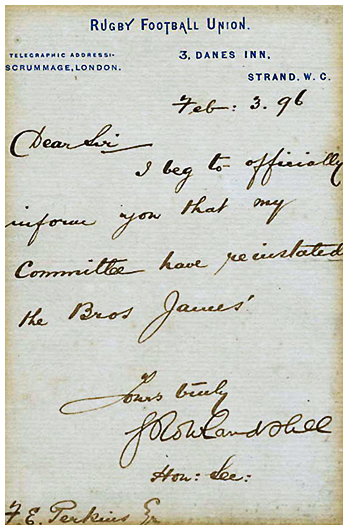 RUGBY FOOTBALL UNION.
TELEGRAPHIC ADDRESS:-
SCRUMMAGE, LONDON.
3, DANES INN,
STRAND. W. C.
Feb: 3. 96
Dear Sir
I beg to officially
inform you that my
Committee have reinstated
the Bros James'
Yours truly
G Rowland Hill
Hon: Sec:
F. E. Perkins Eq